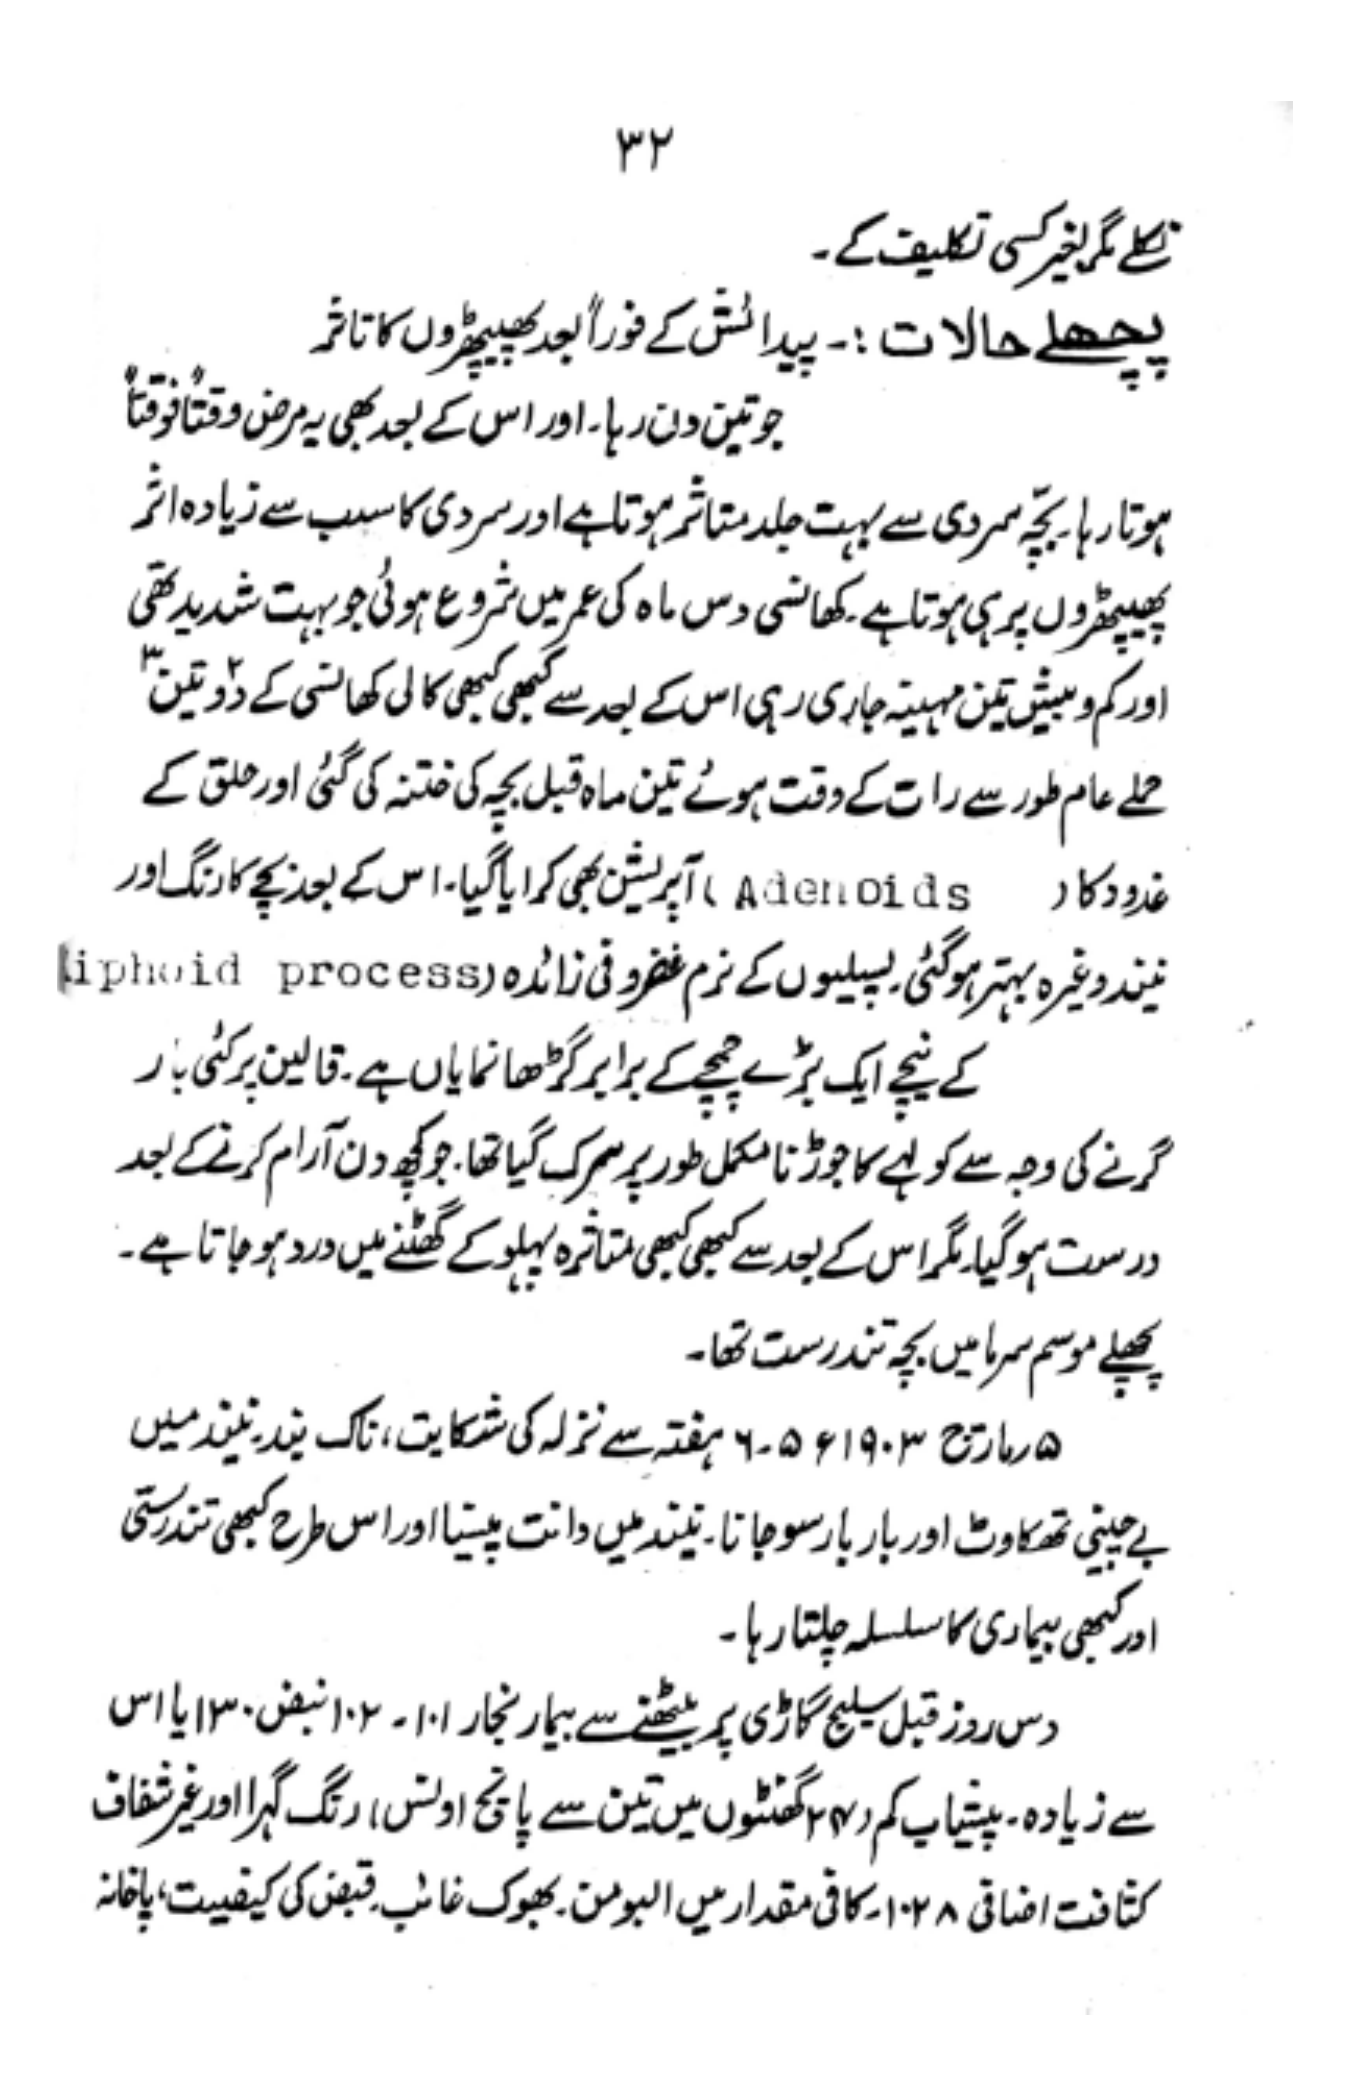 ۳۲
نکلے مگر بغیر کسی تکلیف کے۔
پچھلے حالات :۔ پیدائش کے فوراً بعد پھیپھڑوں کا تاثر
جو تین دن رہا۔ اور اس کے بعد بھی یہ مرض وقتاً فوقتاً
ہوتا رہا۔ بچّہ سردی سے بہت جلد متاثر ہوتا ہے اور سردی کا سبب سے زیادہ اثر
پھیپھڑوں پر ہی ہوتا ہے۔ کھانسی دس ماہ کی عمر میں شروع ہوئی جو بہت شدید تھی
اور کم و بیش تین مہینہ جاری رہی اس کے بعد سے کبھی کبھی کالی کھانسی کے دو۲ تین۳
حملے عام طور سے رات کے وقت ہوئے تین ماہ قبل بچہ کی ختنہ کی گئی اور حلق کے
غدود کا (Adenoids) آپریشن بھی کرایا گیا۔ اس کے بعد بچے کا رنگ اور
نیند وغیرہ بہتر ہو گئی۔ پسلیوں کے نرم غضروفی زائدہ (iphoid process
کے نیچے ایک بڑے چمچے کے برابر گڑھا نمایاں ہے۔ قالین پر کئی بار
گرنے کی وجہ سے کولہے کا جوڑ نامکمل طور پر سرک گیا تھا۔ جو کچھ دن آرام کرنے کے بعد
درست ہو گیا۔ مگر اس کے بعد سے کبھی کبھی متاثرہ پہلو کے گھٹنے میں درد ہو جاتا ہے۔
پچھلے موسم سرما میں بچہ تندرست تھا۔
۵ رمارچ ۱۹۰۳ء ۵۔۶ ہفتہ سے نزلہ کی شکایت، ناک بند۔ نیند میں
بے چینی تھکاوٹ اور بار بار سو جانا۔ نیند میں دانت پیسنا اور اس طرح کبھی تندرستی
اور کبھی بیماری کا سلسلہ چلتا رہا۔
دس روز قبل سلیج گاڑی پر بیٹھنے سے بیمار بخار ۱۰۱۔ ۱۰۲ نبض ۱۳۰ یا اس
سے زیادہ۔ پیشاب کم (۲۴ گھنٹوں میں تین سے پانچ اونس) رنگ گہرا اور غیر شفاف
کثافت اضافی ۱۰۲۸۔ کافی مقدار میں البومن۔ بھوک غائب۔ قبض کی کیفیت، پاخانہ